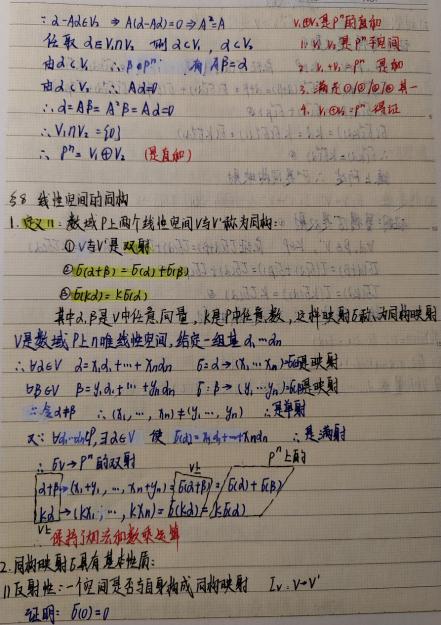 ∵ α-Aα∈V₂ ⇒ A(α-Aα)=0 ⇒ A²=A
任取 α∈V₁∩V₂ 则 α∈V₁, α∈V₂
由α∈V₁ ∴ β∈Pⁿ 有 Aβ=α
由α∈V₂ ∴ Aα=0
∴ α=Aβ=A²β=Aα=0
∴ V₁∩V₂={0}
∴ Pⁿ=V₁⊕V₂ (是直和)
V₁⊕V₂是Pⁿ的直和
1. V₁ V₂是Pⁿ子空间
2. V₁+V₂=Pⁿ 是和
3. 满足①/②/③/④其一
4. V₁⊕V₂=Pⁿ 得证
§8 线性空间的同构
1.定义11:数域P上两个线性空间V与V'称为同构:
①V与V'是双射
②б(α+β)=б(α)+б(β)
③б(kα)=kб(α)
其中α,β是V中任意向量,k是P中任意数,这样映射б称为同构映射
V是数域P上n唯线性空间,给定一组基α₁…αn
∴∀α∈V α=x₁α₁+…+xnαn б:α→(x₁…xn)=б是映射
∀β∈V β=y₁α₁+…+ynαn б:β→(y₁…yn)=б是映射
∴令α≠β ∴(x₁,…,xn)≠(y₁,…,yn) ∴是单射
∴是满射
∴ бV→Pⁿ的双射
V上 Pⁿ上的
α+β→(x₁+y₁,…,xn+yn)=б(α+β)=б(α)+б(β)
kα→(kx₁,…,kxn)=б(kα)=kб(α)
V上
保持了加法和数乘运算
2.同构映射б具有基本性质:
1)反射性:一个空间是否与自身构成同构映射 Iv:V→V'
证明:б(0)=0